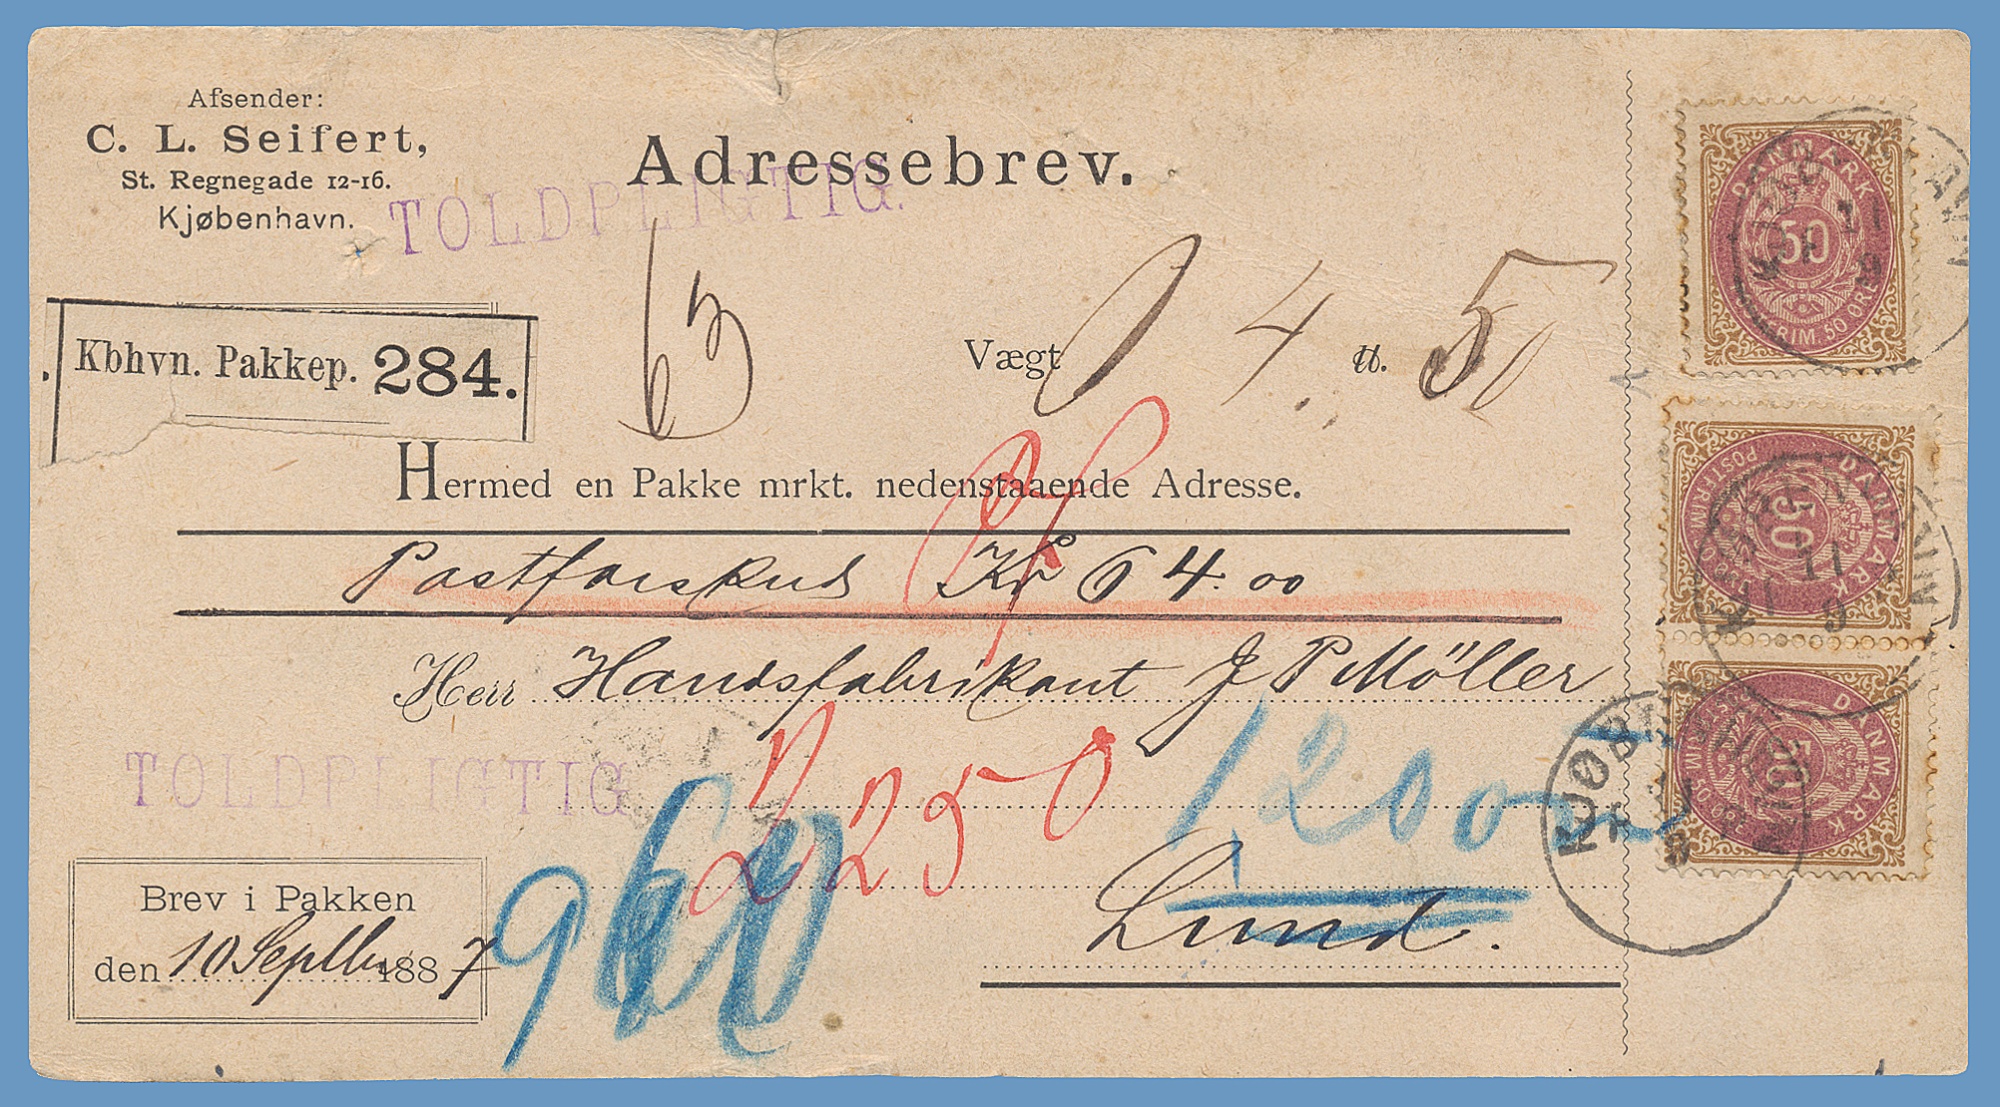 Afsender:
C. L. Seifert,
St. Regnegade 12-16.
Kjøbenhavn.
Adressebrev.
TOLDPLIGTIG.
63
Vægt 4 ℔. 50
Kbhvn. Pakkep. 284.
Hermed en Pakke mrkt. nedenstaaende Adresse.
Postforskud Kr 64.00
Herr Handsfabrikant J P Möller
2250
1200
TOLDPLIGTIG
960
Lund.
Brev i Pakken
den 10 Septbr 1887
DANMARK
50
POSTFRIM. 50 ØRE
DANMARK
50
POSTFRIM. 50 ØRE
DANMARK
50
POSTFRIM. 50 ØRE